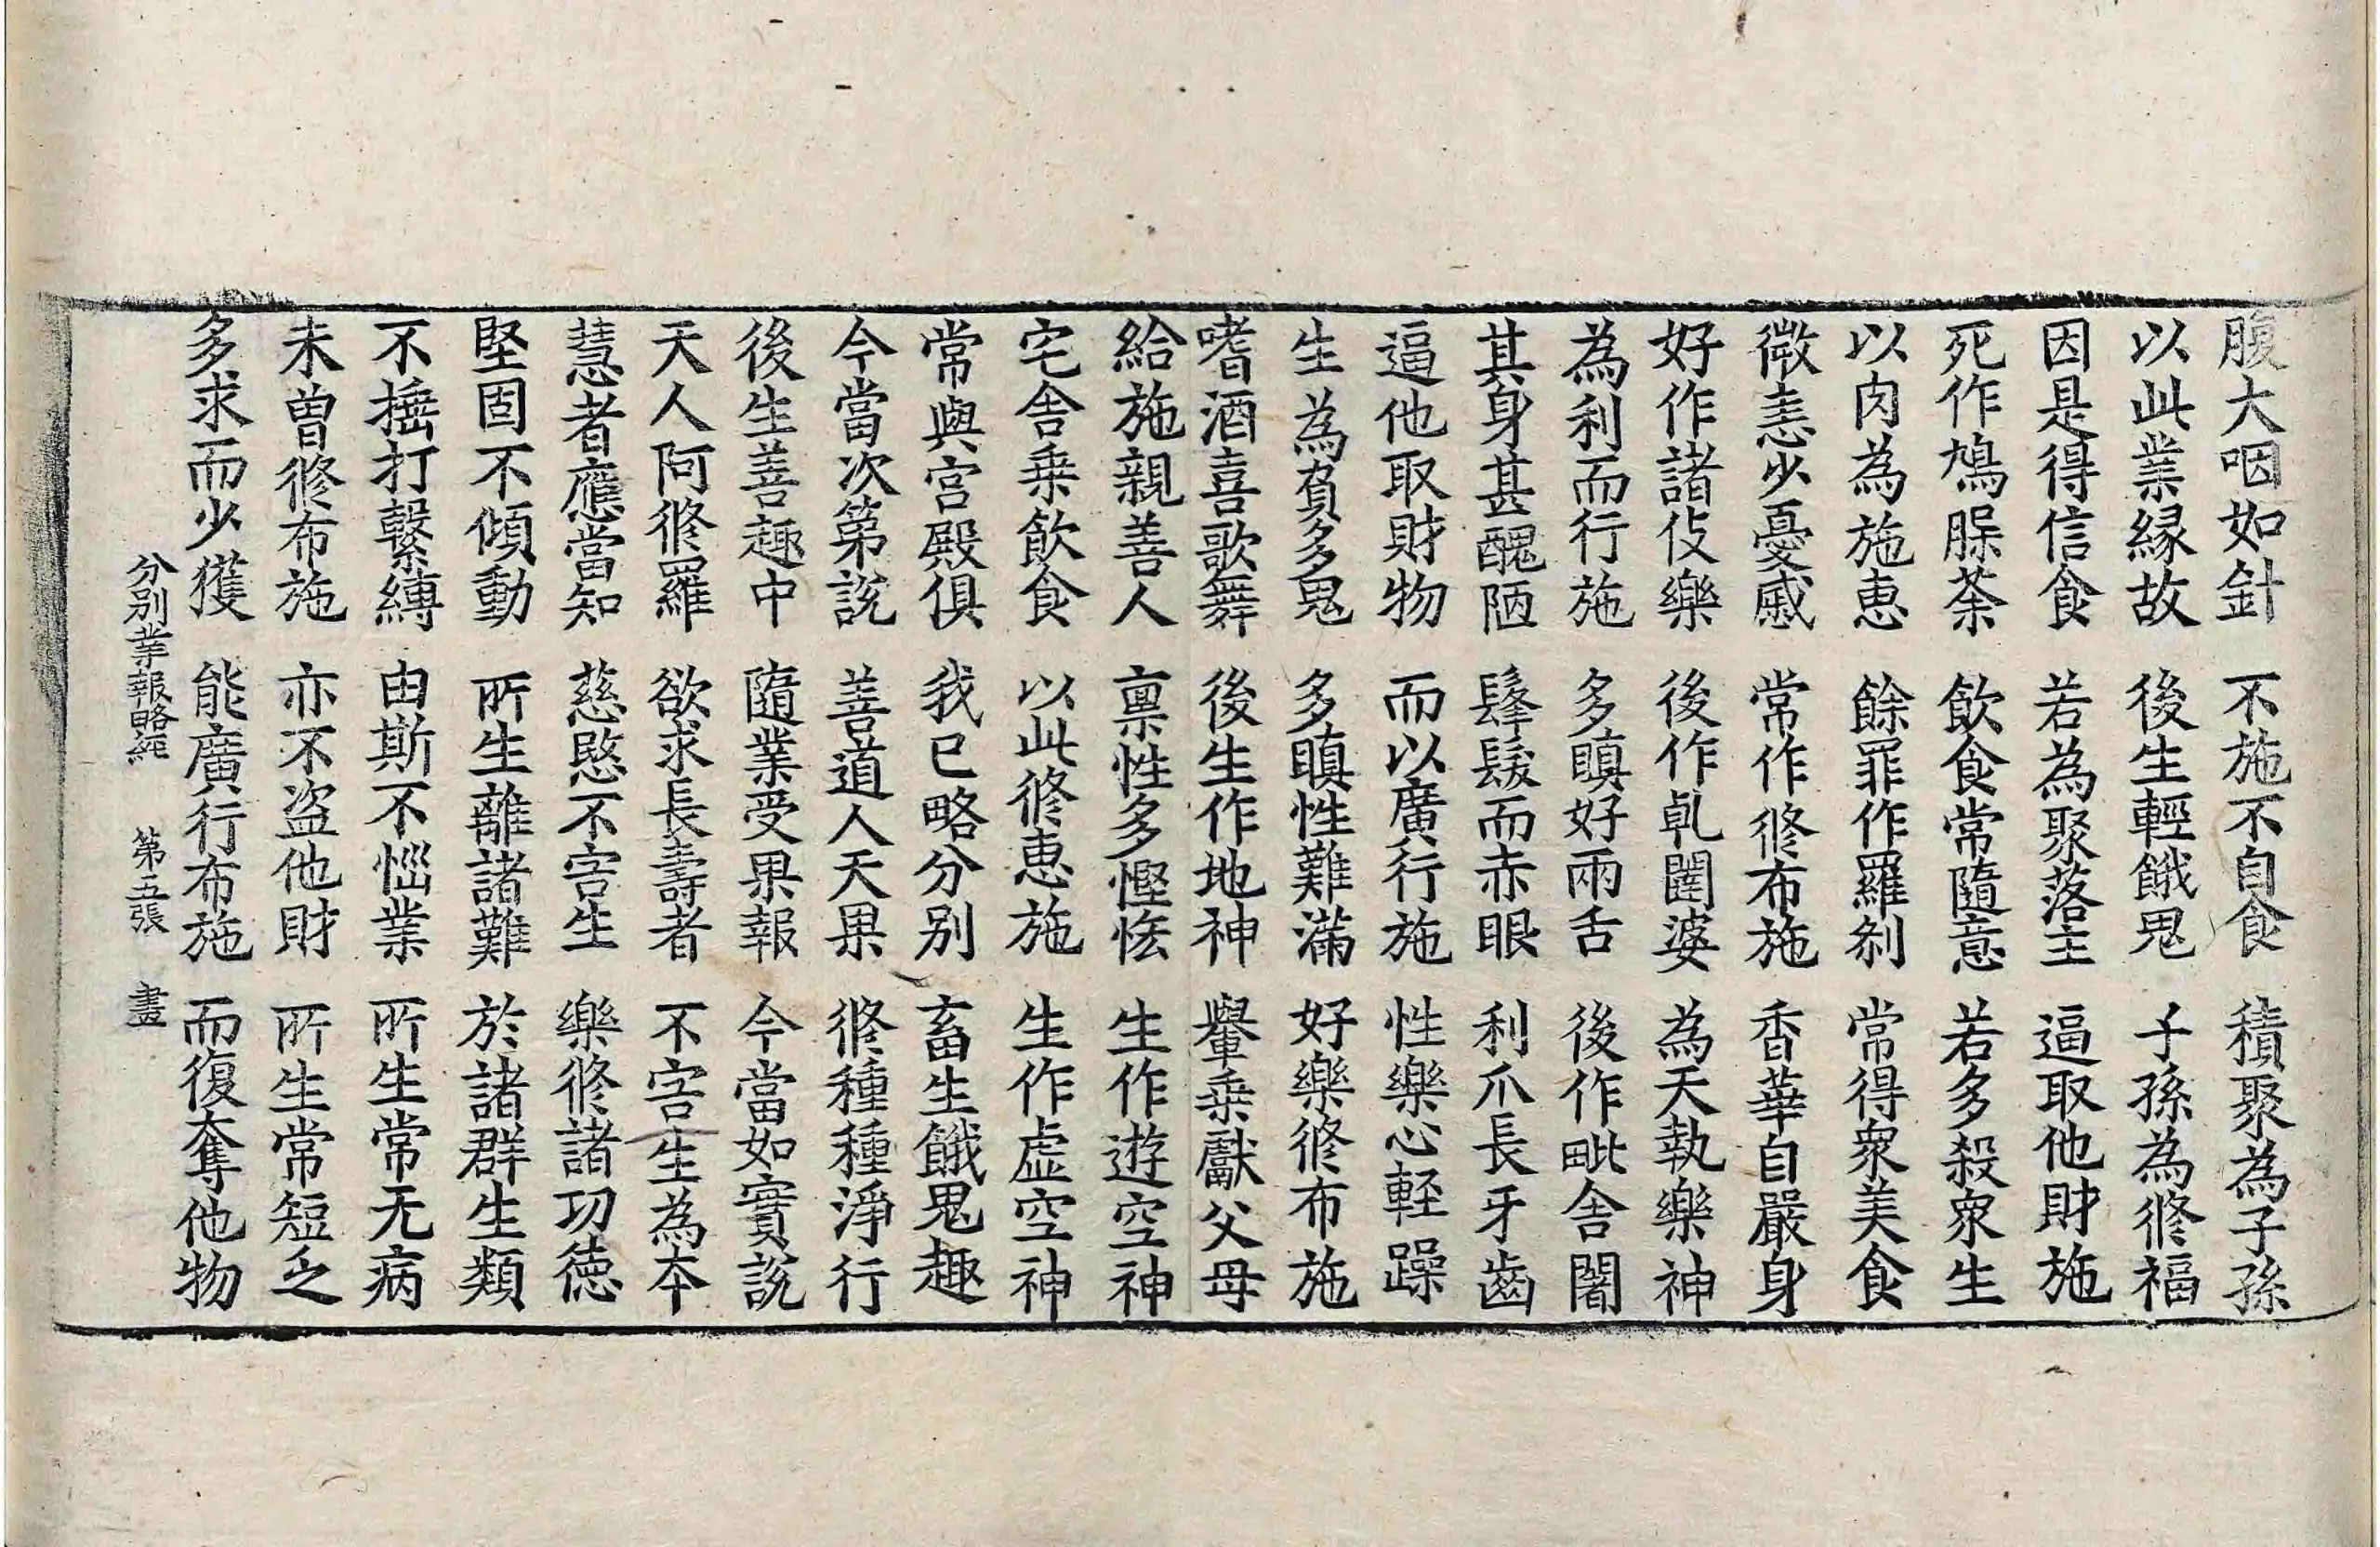 腹大咽如針 不施不自食 積聚為子孫
以此業緣故 後生輕餓鬼 子孫為修福
因是得信食 若為聚落主 逼取他財施
死作鳩腬荼 飲食常隨意 若多殺衆生
以肉為施惠 餘罪作羅剎 常得衆美食
微恚少憂慼 常作修布施 香華自嚴身
好作諸伎樂 後作乹闥婆 為天執樂神
為利而行施 多瞋好兩舌 後作毗舍闍
其身甚醜陋 髼髮而赤眼 利爪長牙齒
逼他取財物 而以廣行施 性樂心輕躁
生為貧多鬼 多瞋性難滿 好樂修布施
嗜酒喜歌舞 後生作地神 轝乗獻父母
給施親善人 禀性多慳恡 生作遊空神
宅舍乗飲食 以此修惠施 生作虛空神
常與宮殿俱 我已略分別 畜生餓鬼趣
今當次第說 善道人天果 修種種淨行
後生善趣中 隨業受果報 今當如實說
天人阿修羅 欲求長壽者 不害生為本
慧者應當知 慈愍不害生 樂修諸功德
堅固不傾動 所生離諸難 於諸群生類
不捶打繫縛 由斯不惱業 所生常无病
未曾修布施 亦不盜他財 所生常短乏
多求而少獲 能廣行布施 而復奪他物
分別業報略經 第五張 畫